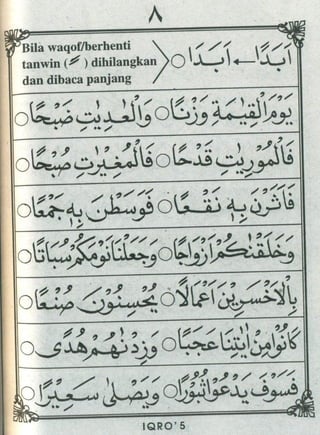 ٨
اَبَدًا ← اَبَدَا ○ Bila waqof/berhenti
tanwin (ـً) dihilangkan
dan dibaca panjang
يَوْمَ الْقِيٰمَةِ وَزْنًا ○ وَالْعٰدِيٰتِ ضَبْحًا ○
فَالْمُوْرِيٰتِ قَدْحًا ○ فَالْمُغِيْرٰتِ صُبْحًا ○
فَاَثَرْنَ بِهٖ نَقْعًا ○ فَوَسَطْنَ بِهٖ جَمْعًا ○
وَخَلَقْنٰكُمْ اَزْوَاجًا ○ وَجَعَلْنَا نَوْمَكُمْ سُبَاتًا ○
بِالْاَخْسَرِيْنَ اَعْمَالًا ○ يُحْسِنُوْنَ صُنْعًا ○
كَانُوْا مِنْ اٰيٰتِنَا عَجَبًا ○ وَزِدْنٰهُمْ هُدًى ○
فَسَوْفَ يَدْعُوْا ثُبُوْرًا ○ وَيَصْلٰى سَعِيْرًا ○
IQRO' 5